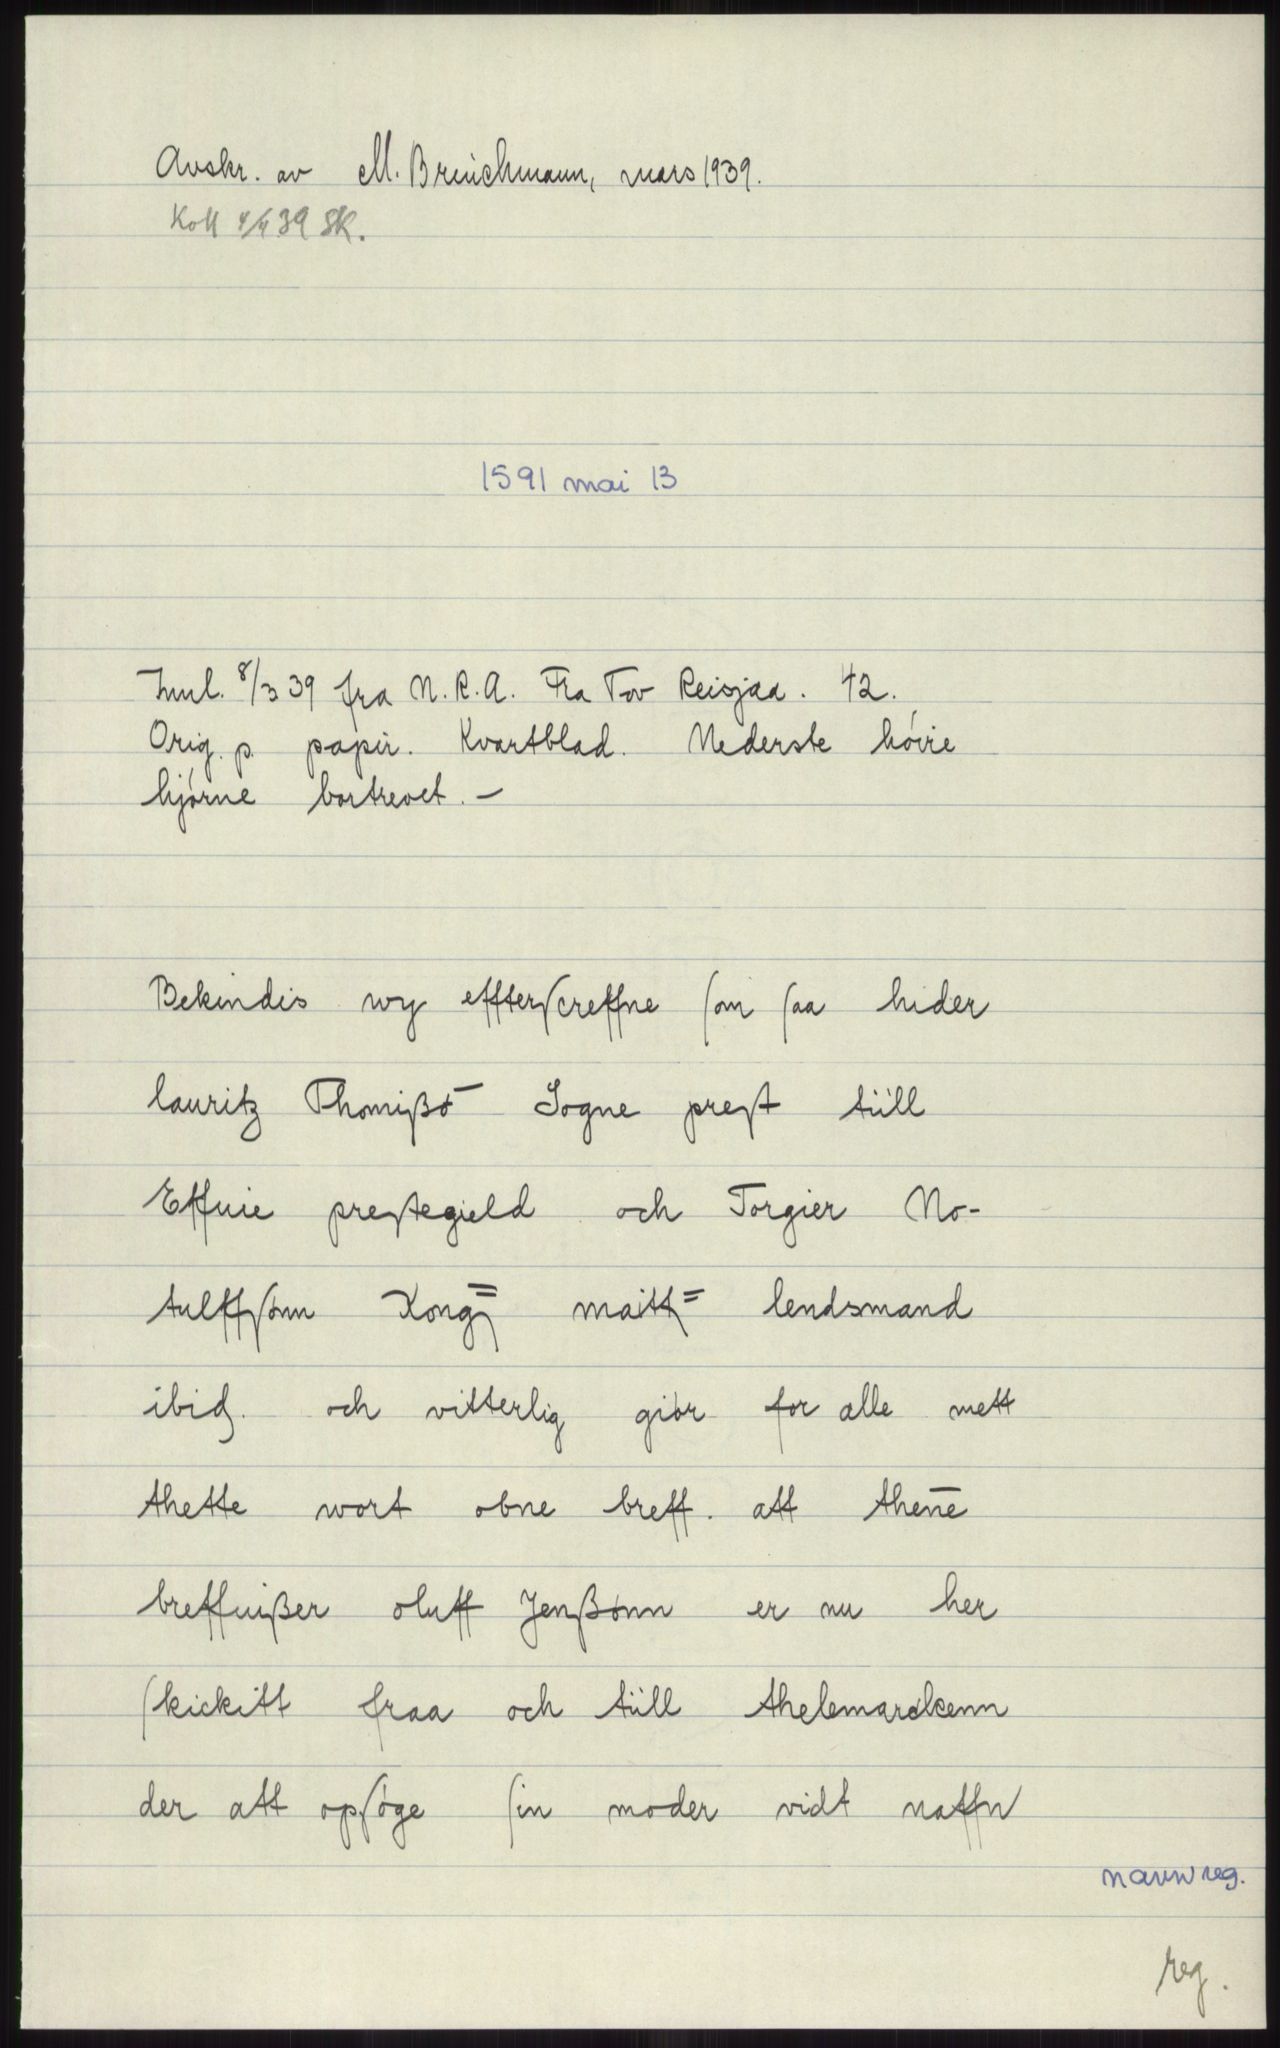 Avskr. av M. Brinchmann, mars 1939.
Koll 4/4 39 SK.
1591 mai 13
Innl. 8/3 39 fra N.R.A. Fra Tov Reisjaa. 42.
Orig. p. papir. Kvartblad. Nederste høire
hjørne bortrevet. –
Bekindis wy effterſcreffne ſom ſaa hider
lauritz Thomißø̄ Sogne preſt tüll
Effuie preſtegield och Torgier No-
tulffſønn Kong= maitt= lendsmand
ibid. och vitterlig giør for alle mett
thette wort obne breff. att thene̅
breffuißer oluff Jenßønn er nu her
ſkickitt fraa och tüll thelemarckenn
der att opſøge ſin moder vidt naffn
navnreg.
reg.